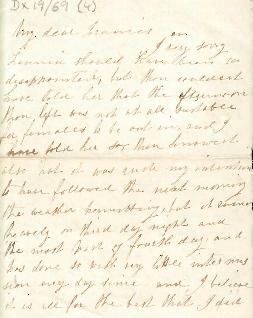 Dx 19/69 (4)
My dear Francis
I very sorry
Fannie should have been so
disappointed, but thou couldest
have told her that the afternoon
thou left was not at all suitable
for females to be out in, and I
have told her so thou knowest
also that it was quite my intention
to have followed the next morning
the weather permitting, but it rained
heavily on third day night and
the most part of fourth day, and
has done so with very little intermis
sion every day since and I believe
it is all for the best that I did